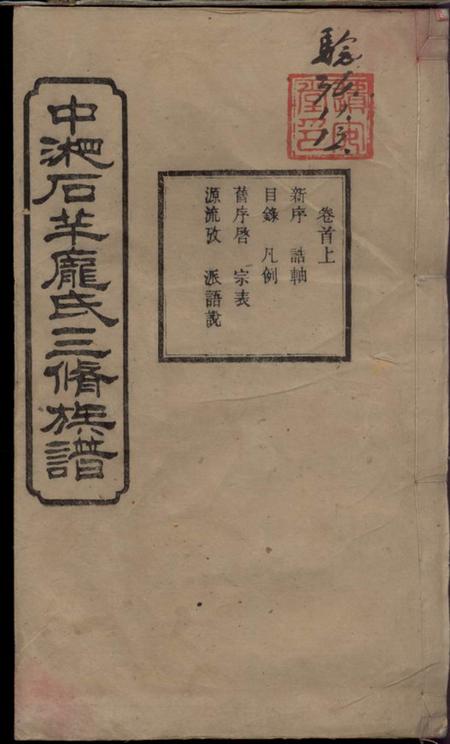 中湘石羊龐氏三脩族譜
卷首上
新序 誥軸
目錄 凡例
舊序啓 宗表
源流攷 派語說